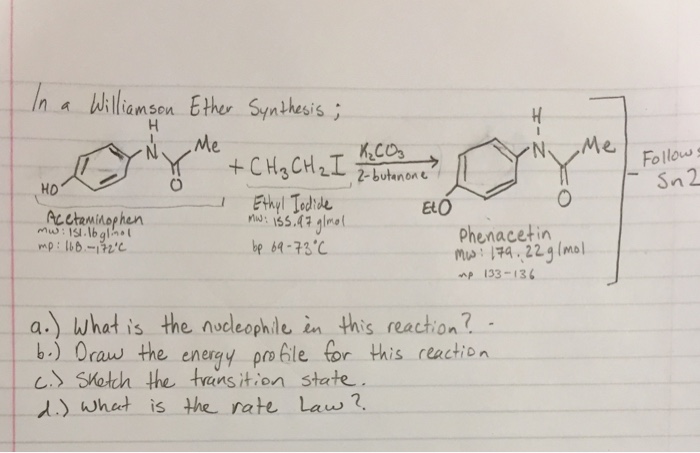 In a Williamson Ether Synthesis;
H
N
Me
O
HO
+ CH3CH2I
K2CO3
2-butanone
H
N
Me
O
EtO
Follows
Sn2
Acetaminophen
mw: 151.16 g/mol
mp: 168.-172°C
Ethyl Iodide
mw: 155.97 g/mol
bp 69-73°C
Phenacetin
mw: 179.22 g/mol
mp 133-136
a.) What is the nucleophile in this reaction? -
b.) Draw the energy profile for this reaction
c.) Sketch the transition state.
d.) what is the rate Law?.